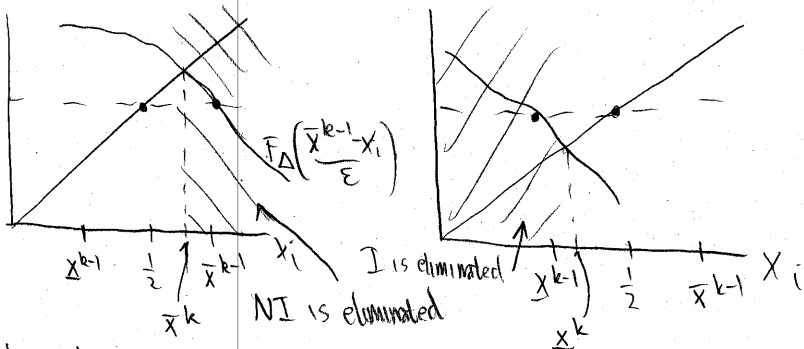 F_Δ((x̄^{k-1} - x_i)/ε)
x̲^{k-1} 1/2 x̄^{k-1} x_i
x̄^k
NI is eliminated
I is eliminated
x̲^{k-1} 1/2 x̄^{k-1} x_i
x̲^k